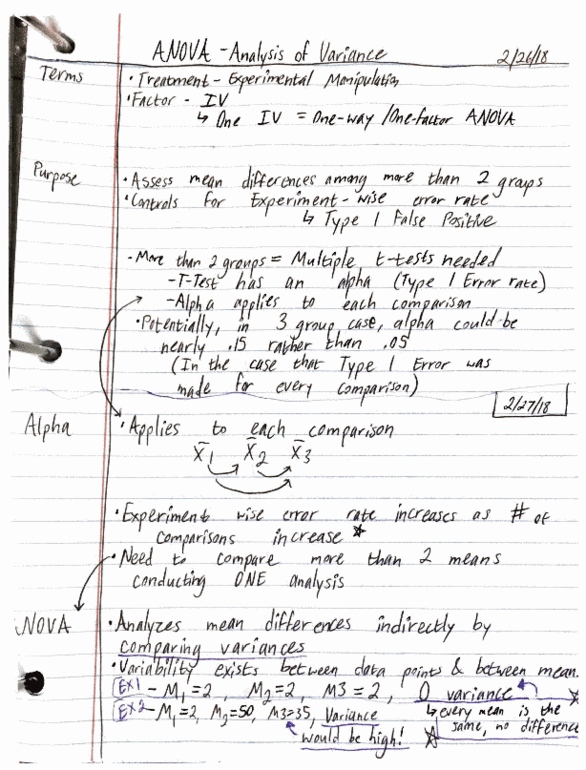 ANOVA - Analysis of Variance 2/26/18
Terms
• Treatment - Experimental Manipulation
• Factor - IV
↳ One IV = One-way / One-factor ANOVA
Purpose
• Assess mean differences among more than 2 groups
• Controls for Experiment-wise error rate
↳ Type 1 False Positive
- More than 2 groups = Multiple t-tests needed
- T-Test has an alpha (Type 1 Error rate)
- Alpha applies to each comparison
• Potentially, in 3 group case, alpha could be
nearly .15 rather than .05
(In the case that Type 1 Error was
made for every comparison)
2/27/18
Alpha
• Applies to each comparison
X̄1 X̄2 X̄3
• Experiment wise error rate increases as # of
comparisons increase ☆
• Need to compare more than 2 means
conducting ONE analysis
NOVA
• Analyzes mean differences indirectly by
comparing variances
• Variability exists between data points & between mean.
EX1 - M1 = 2, M2 = 2, M3 = 2, 0 variance
↳ every mean is the
same, no difference
EX2 - M1 = 2, M2 = 50, M3 = 35, Variance
would be high! ☆